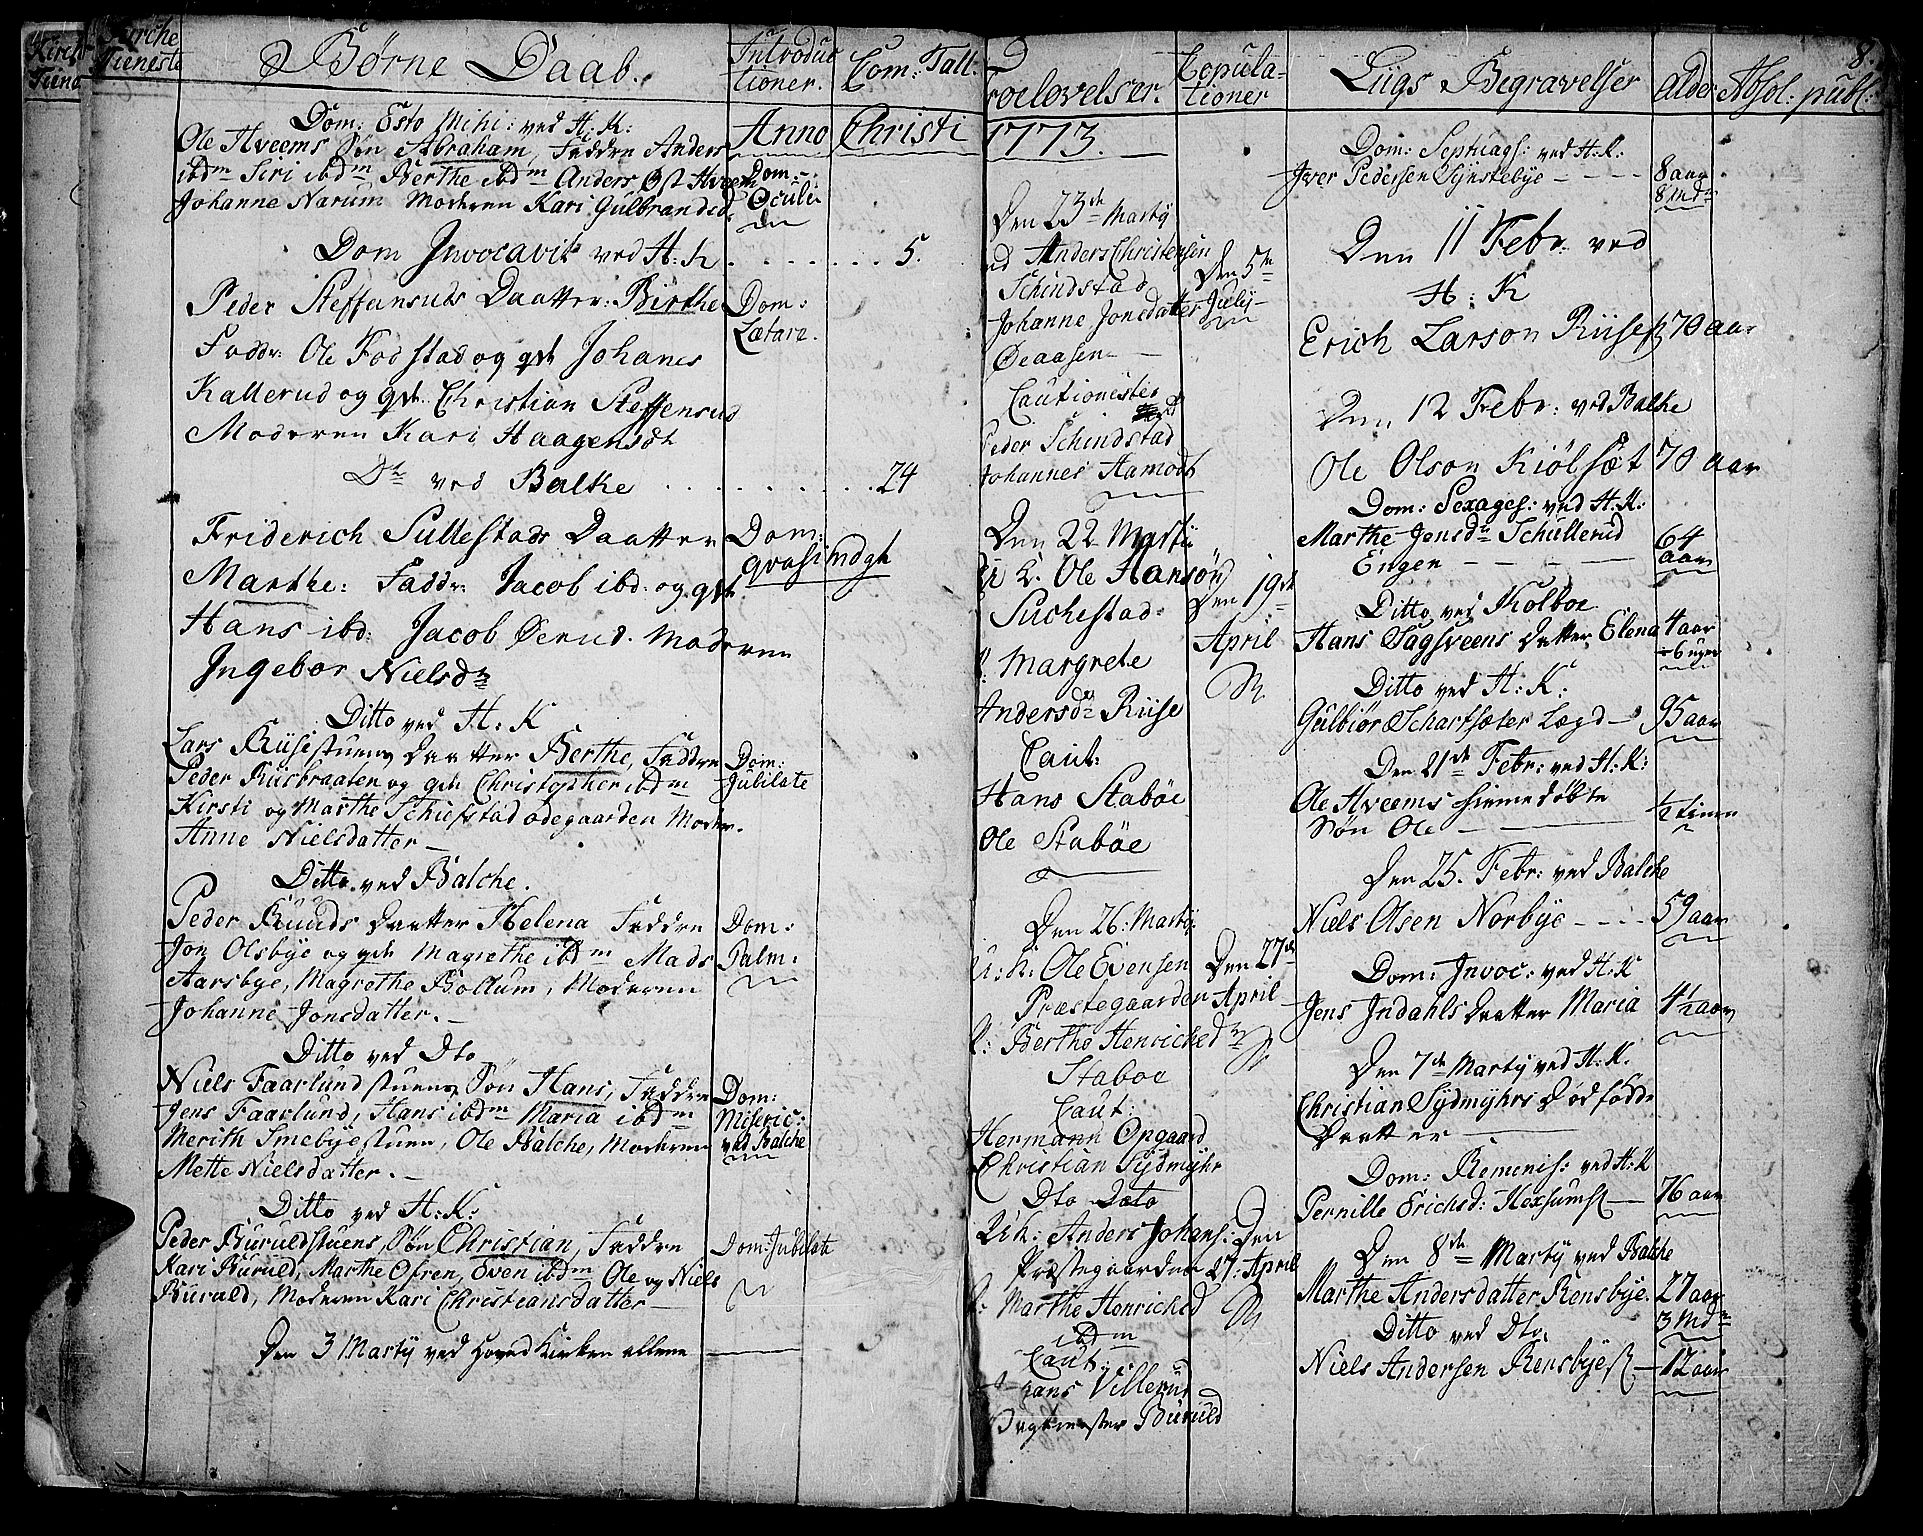 Kirche
Tieneste
Børne Daab.
Introduc
tioner.
Com: Tall.
Anno Christi 1773.
Dom: Esto Mihi: ved H: K:
Ole Hveems Søn Abraham, Faddre Anders
ibdm Siri ibdm Berthe ibdm Anders Øst Hveem
Johanne Narum Moderen Kari Gulbrandsd.
Dom:
Oculi
Dom Invocavit ved H: K . . . . . . . 5.
Peder Steffensuds Daatter: Birthe
Faddr: Ole Fodstad og qvt Johanes
Kallerud og qvt. Christian Steffensrud
Moderen Kari Haagensdt
Dom:
Lætare.
Do ved Balke . . . . . . . . . 24
Friderich Sullestads Daatter
Marthe: Faddr: Jacob ibd: og qvt
Hans ibd: Jacob Øerud. Moderen
Ingebor Nielsdr
Dom:
qvasimodgt
Ditto ved H: K
Lars Riisestuens Daatter Berthe, Faddre
Peder Riisbraaten og qvt Christopher ibdm
Kirsti og Marthe Schiefstad ødegaarden Moder.
Anne Nielsdatter
Dom:
Jubilate
Ditto ved Balche.
Peder Ruuds Daatter Helena Faddre
Jon Olsbye og qvt Magrethe ibdm Mads
Aarsbye, Magrethe Bollum, Moderen
Johanne Jonsdatter.
Dom:
Palm:
Ditto ved Dto
Niels Faarlundstuens Søn Hans, Faddre
Jens Faarlund, Hans ibdm Maria ibdm
Merith Smebyestuen, Ole Balche, Moderen
Mette Nielsdatter.
Dom:
Miseric:
ved Balche
Ditto ved H: K:
Peder Buruldstuens Søn Christian, Faddre
Kari Buruld, Marthe Ofren, Even ibdm Ole og Niels
Buruld, Moderen Kari Christiansdatter
Dom: Jubilate
Den 3 Martÿ ved Hoved Kirken allene
Troelovelser.
Copula-
tioner
Den 23de Martÿ
Anders Christensen
Schindstad
Johanne Jonsdatter
Øeaasen
Cautionister
Peder Schindstad
Johannes Aamodt
Den 5te
Julÿ
Den 22 Martÿ
U K. Ole Hansøn
Suchestad
P: Margrete
Andersdr Riise
Caut:
Hans Stabøe
Ole Stabøe
Den 19de
April
Den 26: Martÿ:
U: K: Ole Evensen
Præstegaarden
P: Berthe Henrichsdr
Staboe
Caut:
Hermann Opgaard
Christian Sÿdmÿhr
Den 27de
April
Dto Dato
U:K: Anders Johans:
Præstegaarden
P: Marthe Henrichsd
ibdm
Caut:
Hans Villerud
Buruld
Den
27: April
Liigs Begravelser
Alder
Absol: publ:
8.
Dom: Septuags: ved H: K:
Iver Pedersen Synstebye - - - - 8 aar
8 Mdr
Den 11 Febr. ved
H: K
Erich Larson Riise 70 aar
Den 12 Febr: ved Balke
Ole Olson Kiølsæt 70 aar
Dom: Sexages: ved H: K:
Marthe Jensdr Schullerud
Engen - - - 64
aar
Ditto ved Kolboe
Hans Sagsveens Datter Elena 4 aar
6 uger
Ditto ved H: K:
Gulbiør Scharfsæter Lægd - 95 aar
Den 21de Febr: ved H: K:
Ole Hveems hiemedøbte
Søn Ole - 1/2 time
Den 25. Febr: ved Balche
Niels Olsen Norbye - - - 59 aar
Dom: Invoc: ved H: K
Jens Indahls Daatter Maria 4 1/2 aar
Den 7de Martÿ ved H: K.
Christian Sÿdmÿhrs Dødfødde
Daatter
Dom: Reminis: ved H: K
Pernille Erichsd: Hexsum - 76 aar
Den 8de Martÿ ved Balche
Marthe Andersdatter Rensbye. 27 aar
3 Mdr
Ditto ved Dto.
Niels Andersen Rensbye - 12 aar